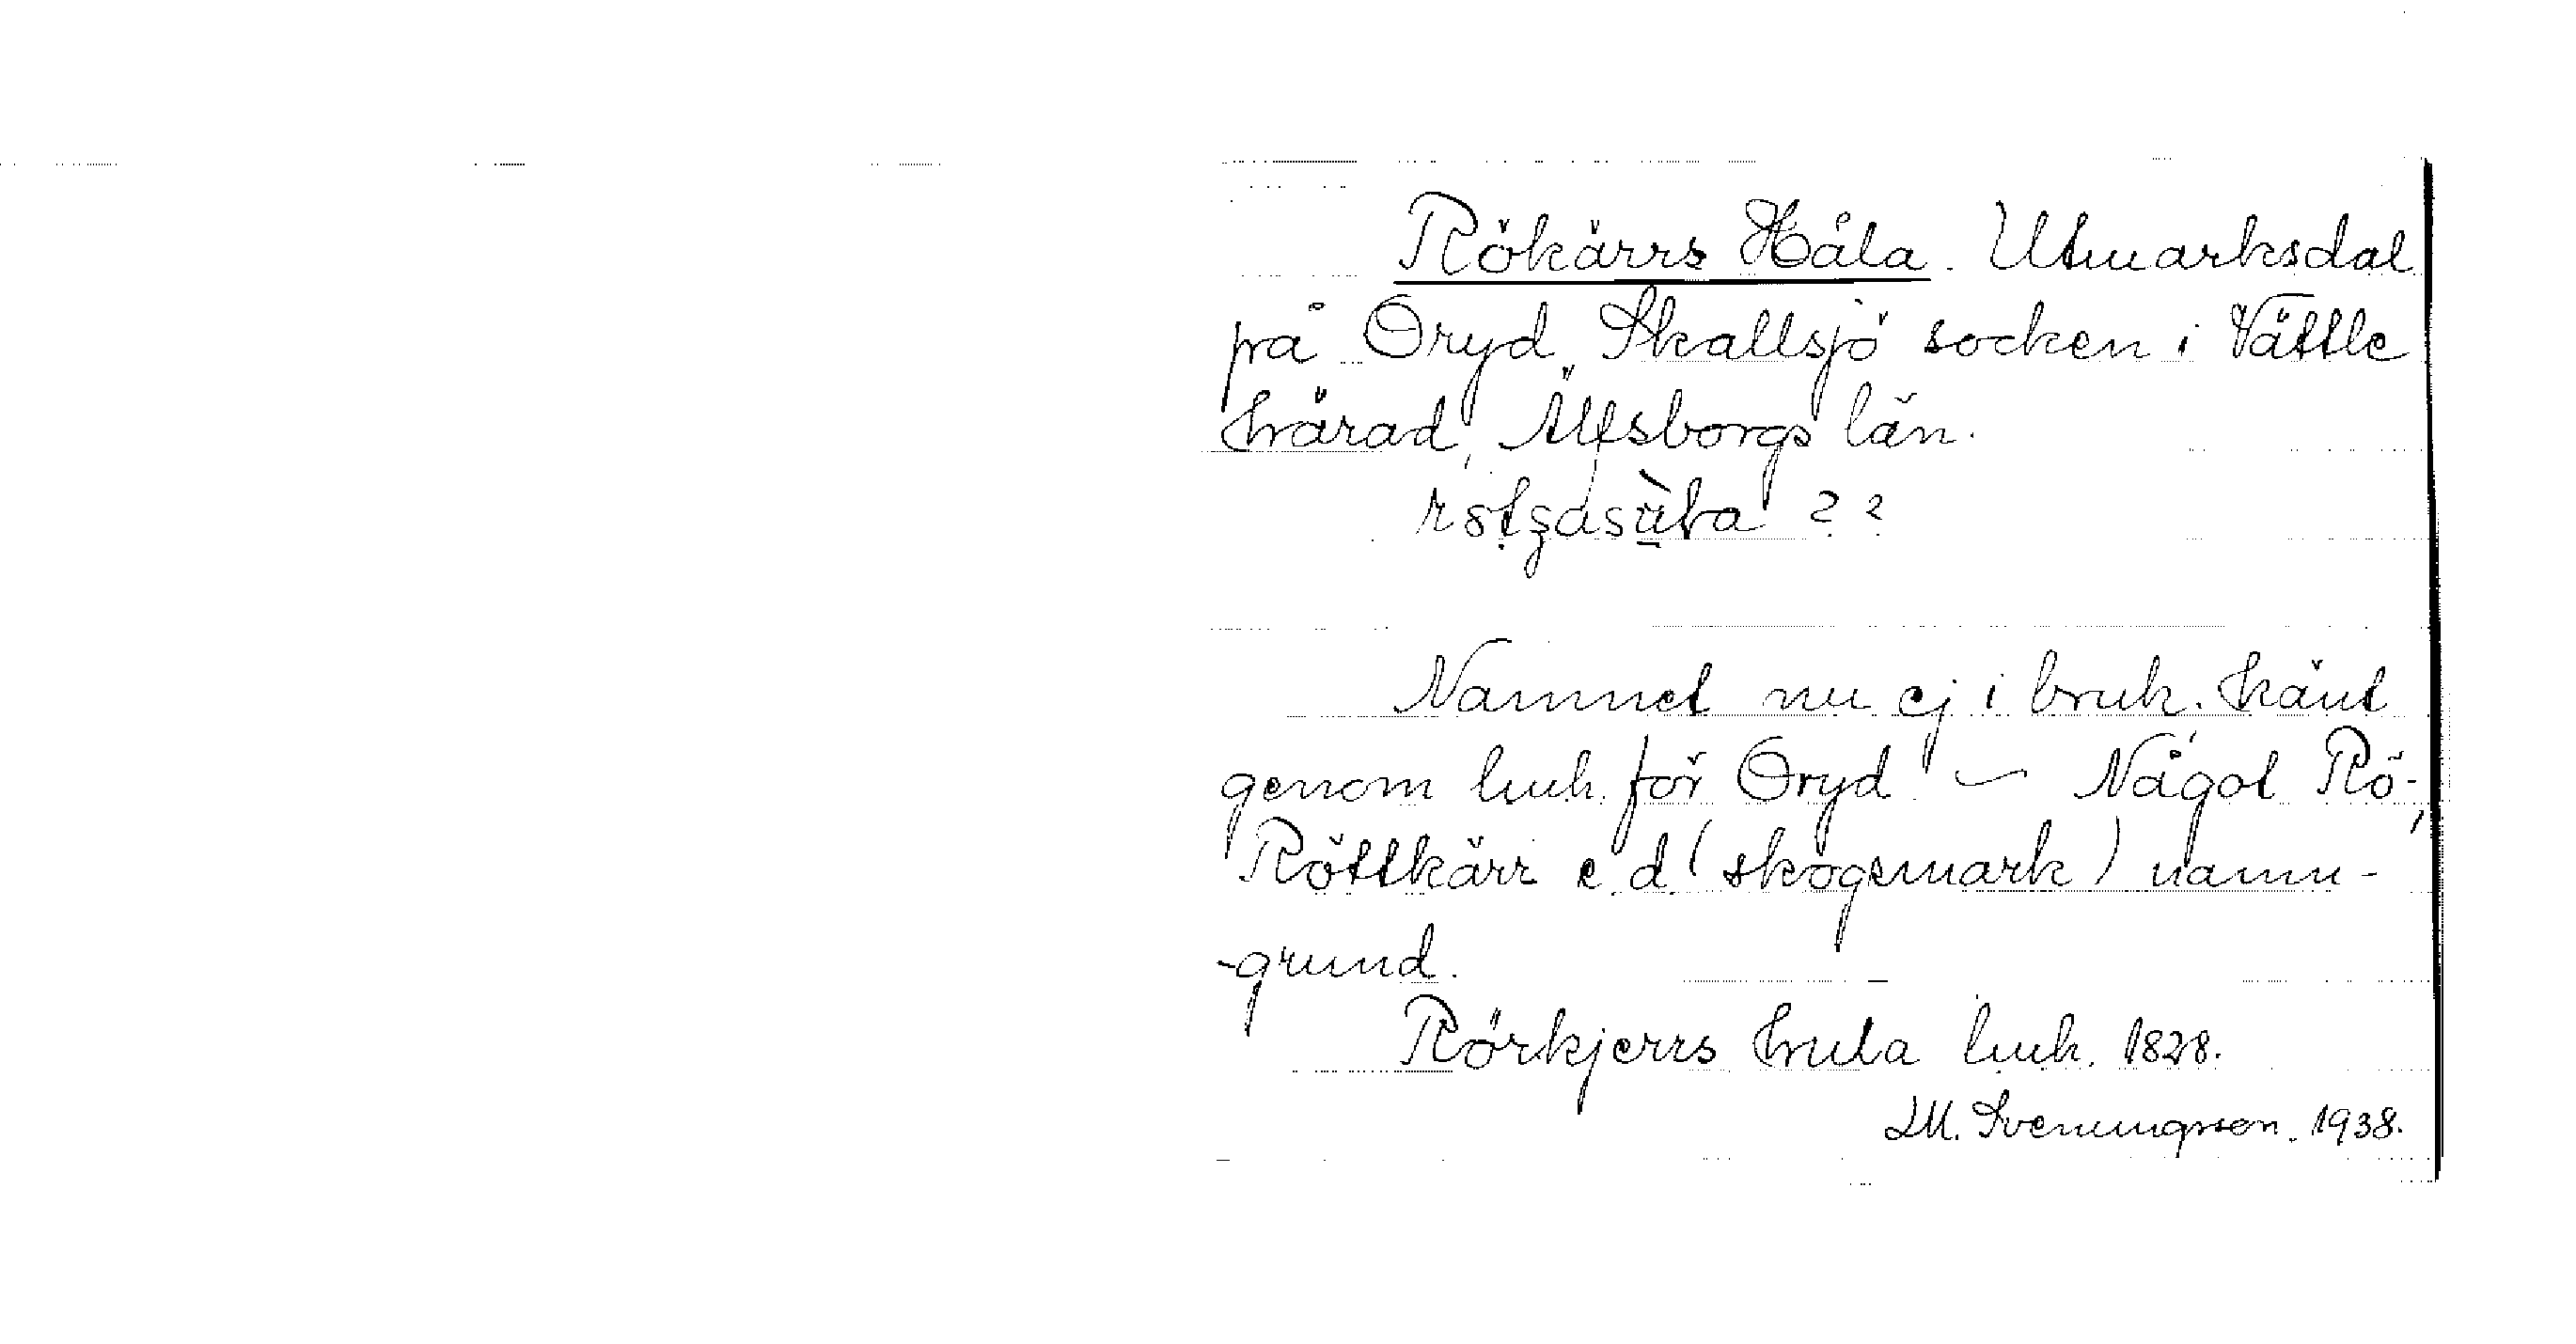 Rökärrs Håla. Utmarksdal
på Öryd, Skallsjö socken i Vättle
härad, Älfsborgs län.
? ?
Namnet nu ej i bruk. Känt
genom luh. för Öryd. – Något Rö-,
Röttkärr e d (skogsmark) namn-
-grund.
Rörkjerrs hula luh. 1828.
LM. Svenungsson. 1938.